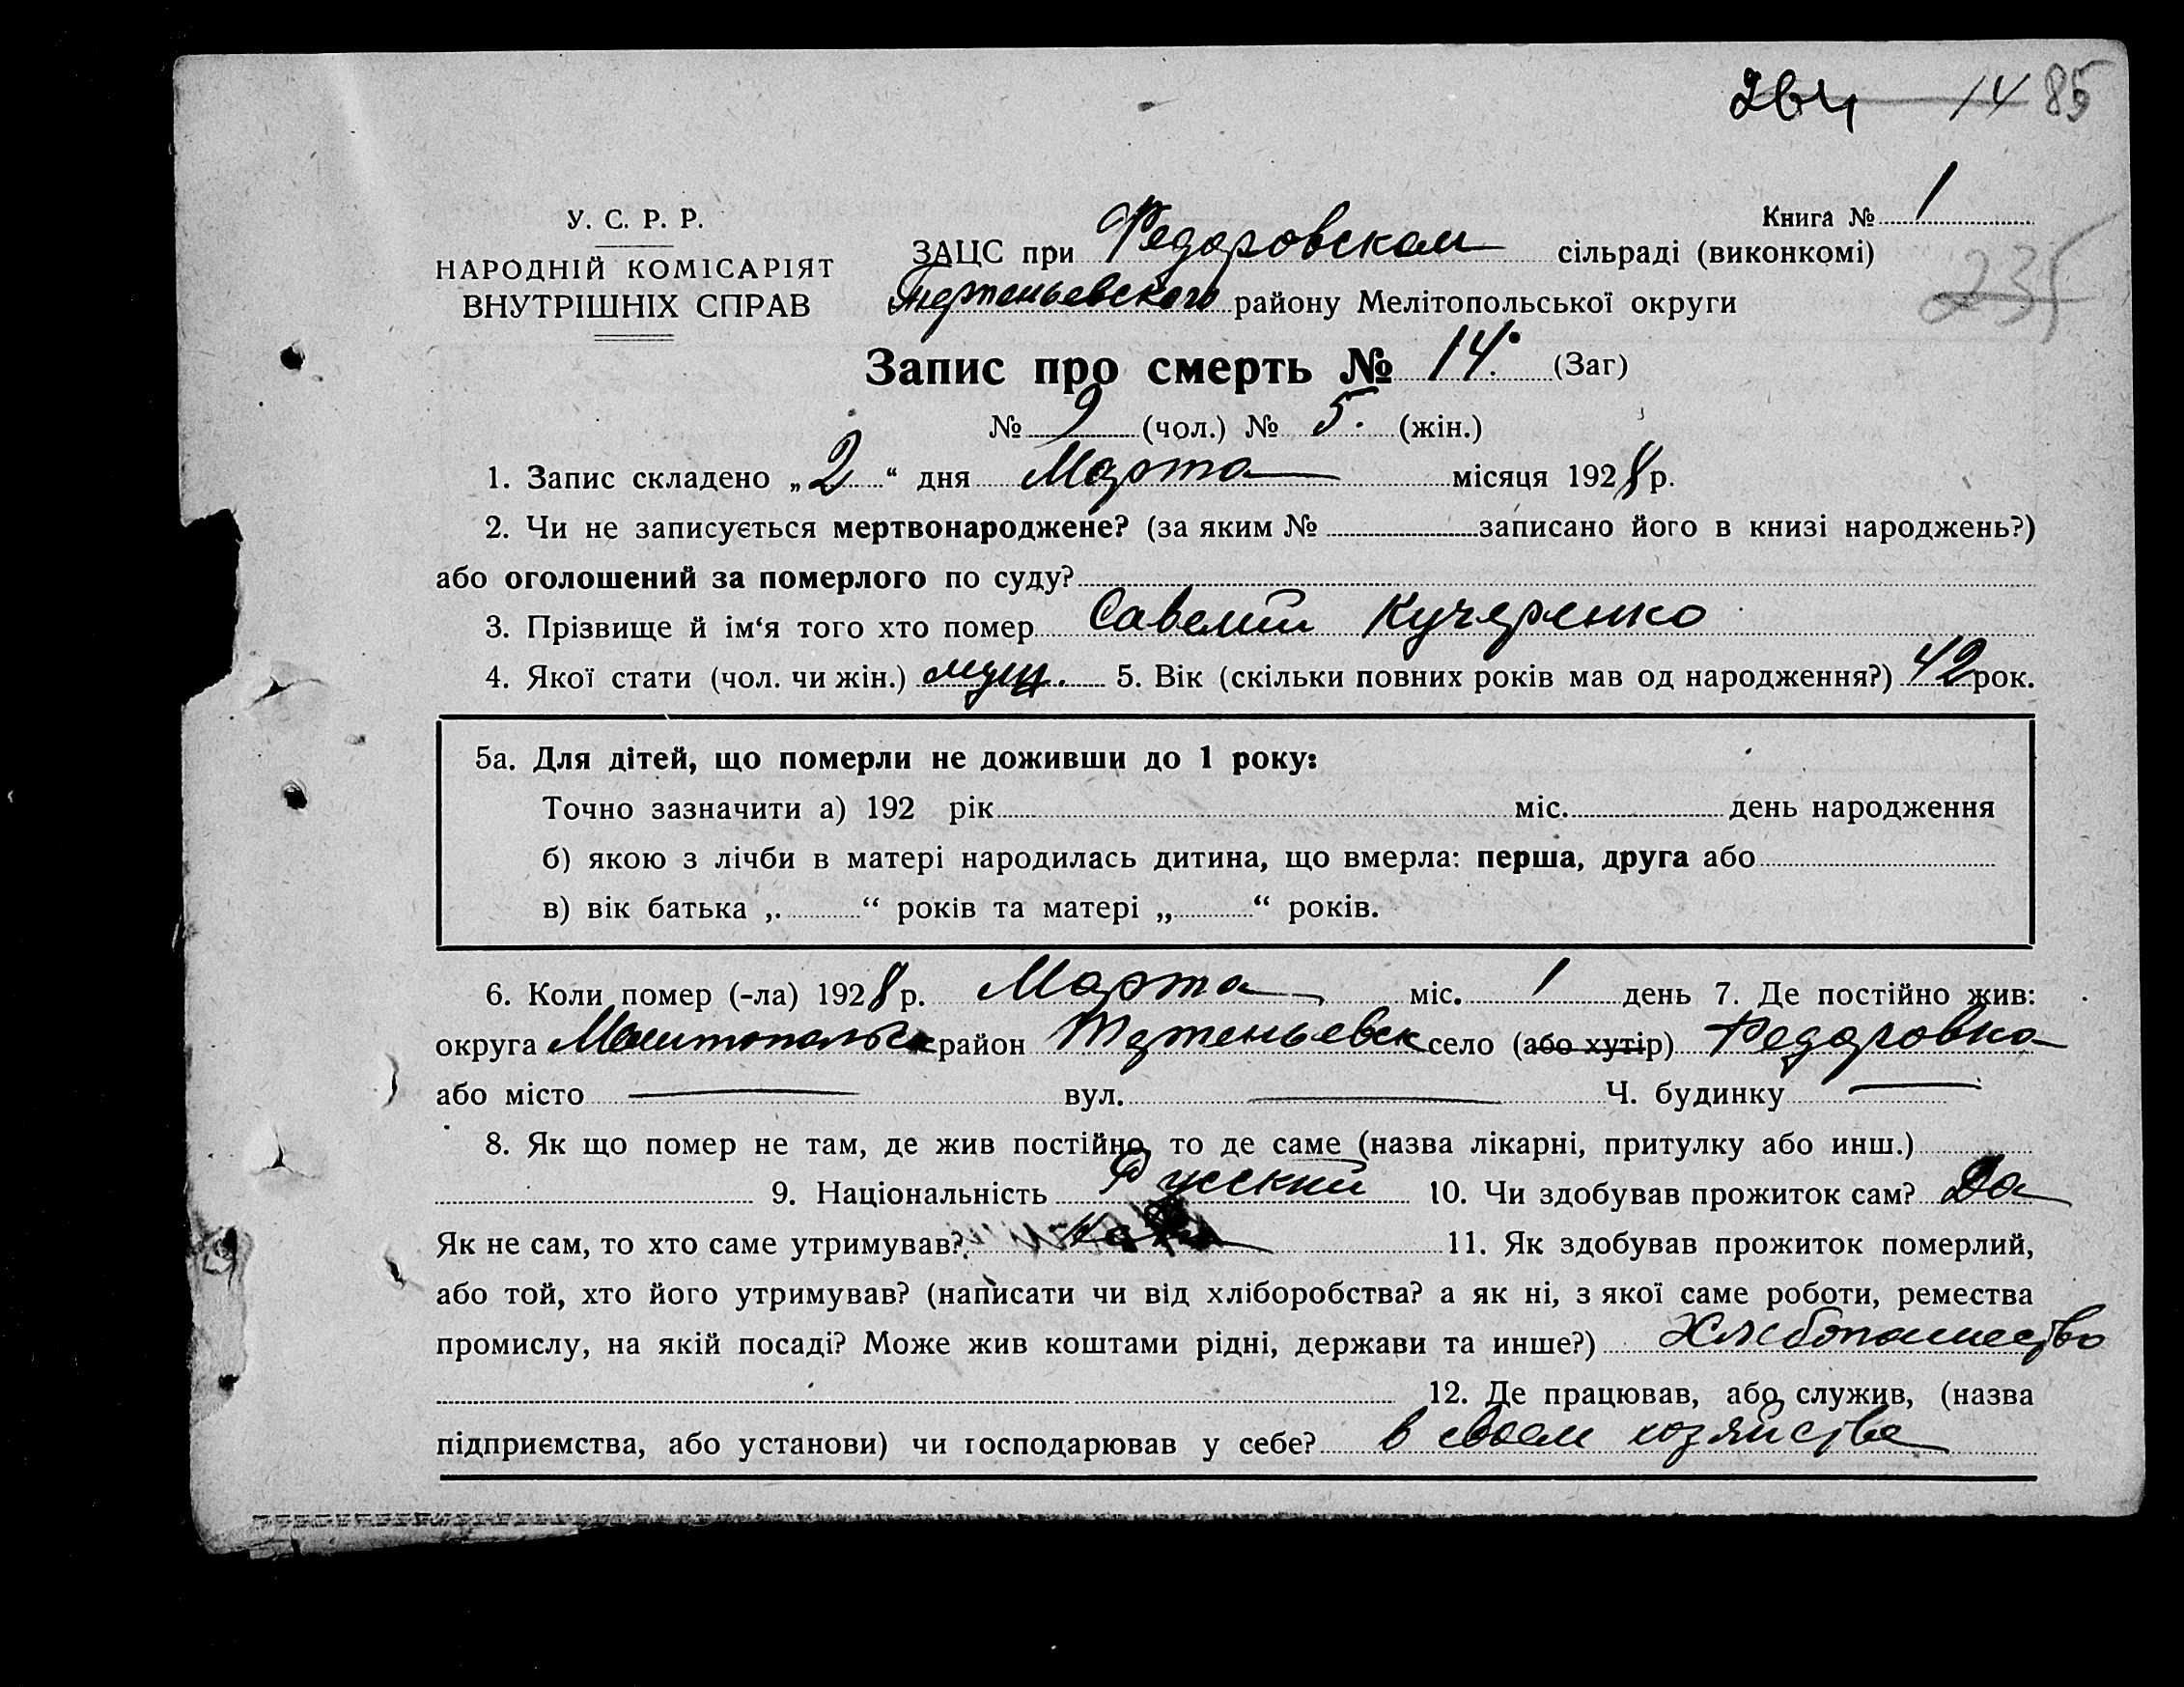 264 14 85
У. С. Р. Р.
Книга № 1
НАРОДНІЙ КОМІСАРІЯТ
ВНУТРІШНІХ СПРАВ
ЗАЦС при Федоровском сільраді (виконкомі)
235
Терпеньевского району Мелітопольської округи
Запис про смерть № 14. (Заг)
№ 9 (чол.) № 5. (жін.)
1. Запис складено „2“ дня Марта місяця 1928 р.
2. Чи не записується мертвонароджене? (за яким № записано його в книзі народжень?)
або оголошений за померлого по суду?
3. Прізвище й ім‘я того хто помер Савелий Кучеренко
4. Якої стати (чол. чи жін.) мущ. 5. Вік (скільки повних років мав од народження?) 42 рок.
5а. Для дітей, що померли не доживши до 1 року:
Точно зазначити а) 192 рік міс. день народження
б) якою з лічби в матері народилась дитина, що вмерла: перша, друга або
в) вік батька „ “ років та матері „ “ років.
6. Коли помер (-ла) 1928 р. Марта міс. 1 день 7. Де постійно жив:
округа район Терпеньевск село (або хутір) Федоровка
або місто — вул. — Ч. будинку —
8. Як що помер не там, де жив постійно, то де саме (назва лікарні, притулку або инш.)
9. Національність Русский 10. Чи здобував прожиток сам? Да
Як не сам, то хто саме утримував? 11. Як здобував прожиток померлий,
або той, хто його утримував? (написати чи від хліборобства? а як ні, з якої саме роботи, ремества
промислу, на якій посаді? Може жив коштами рідні, держави та инше?) Хлебопашество
12. Де працював, або служив, (назва
підприємства, або установи) чи господарював у себе? в своем хозяйстве